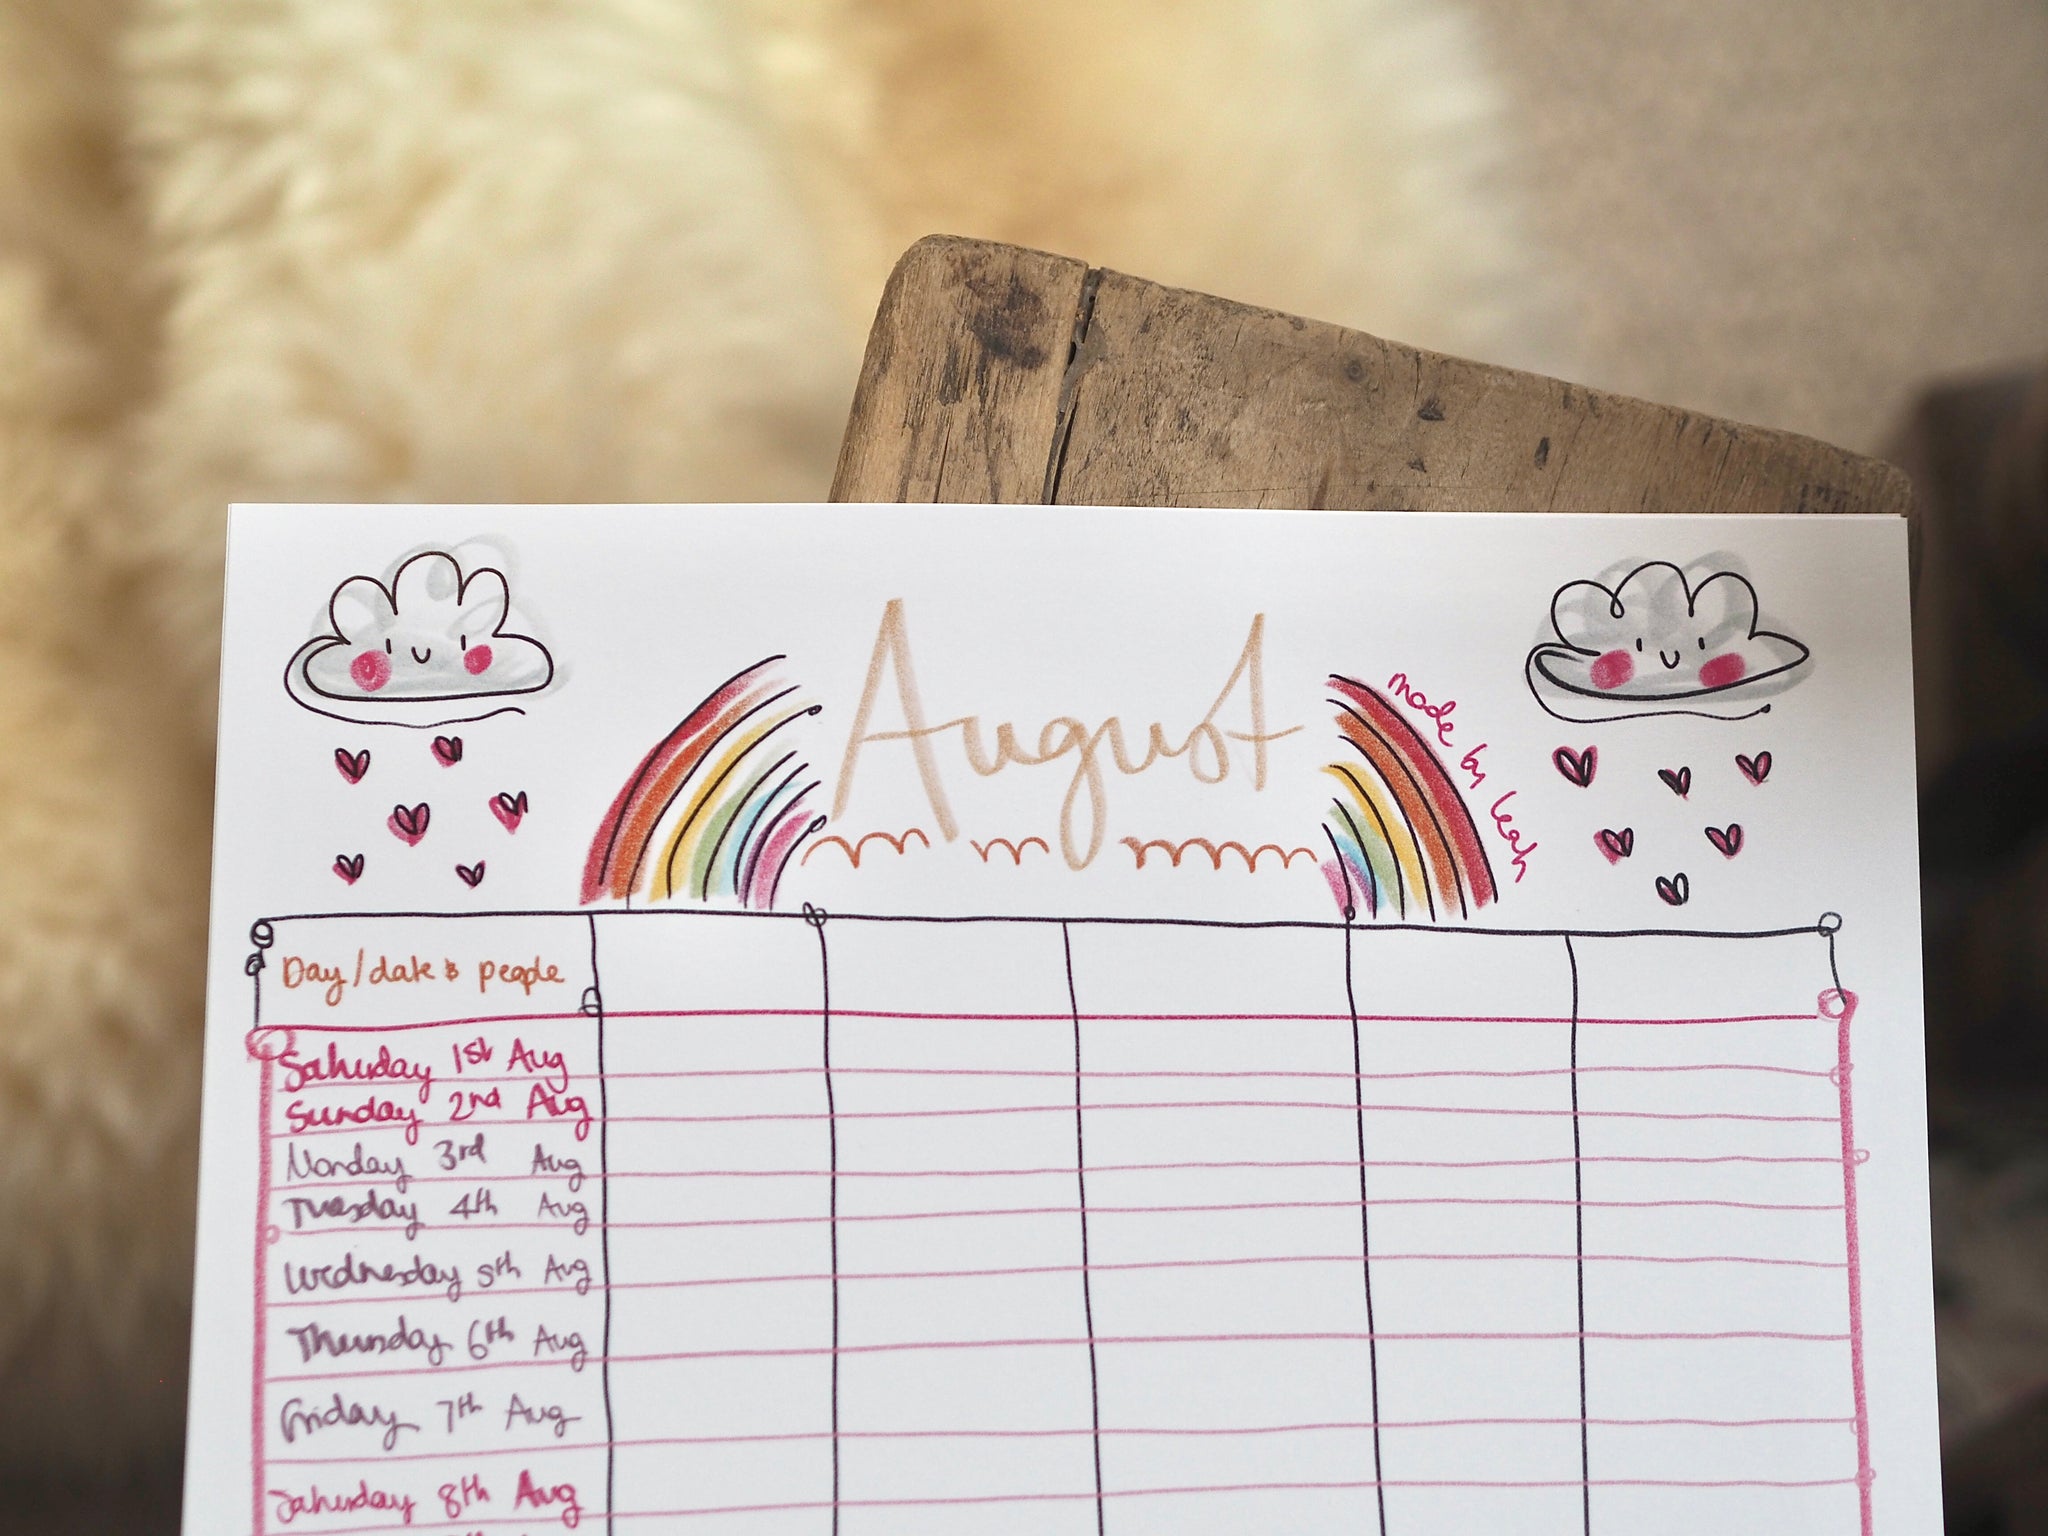 August
made by leah
Day/date & people
Saturday 1st Aug
Sunday 2nd Aug
Monday 3rd Aug
Tuesday 4th Aug
Wednesday 5th Aug
Thursday 6th Aug
Friday 7th Aug
Saturday 8th Aug